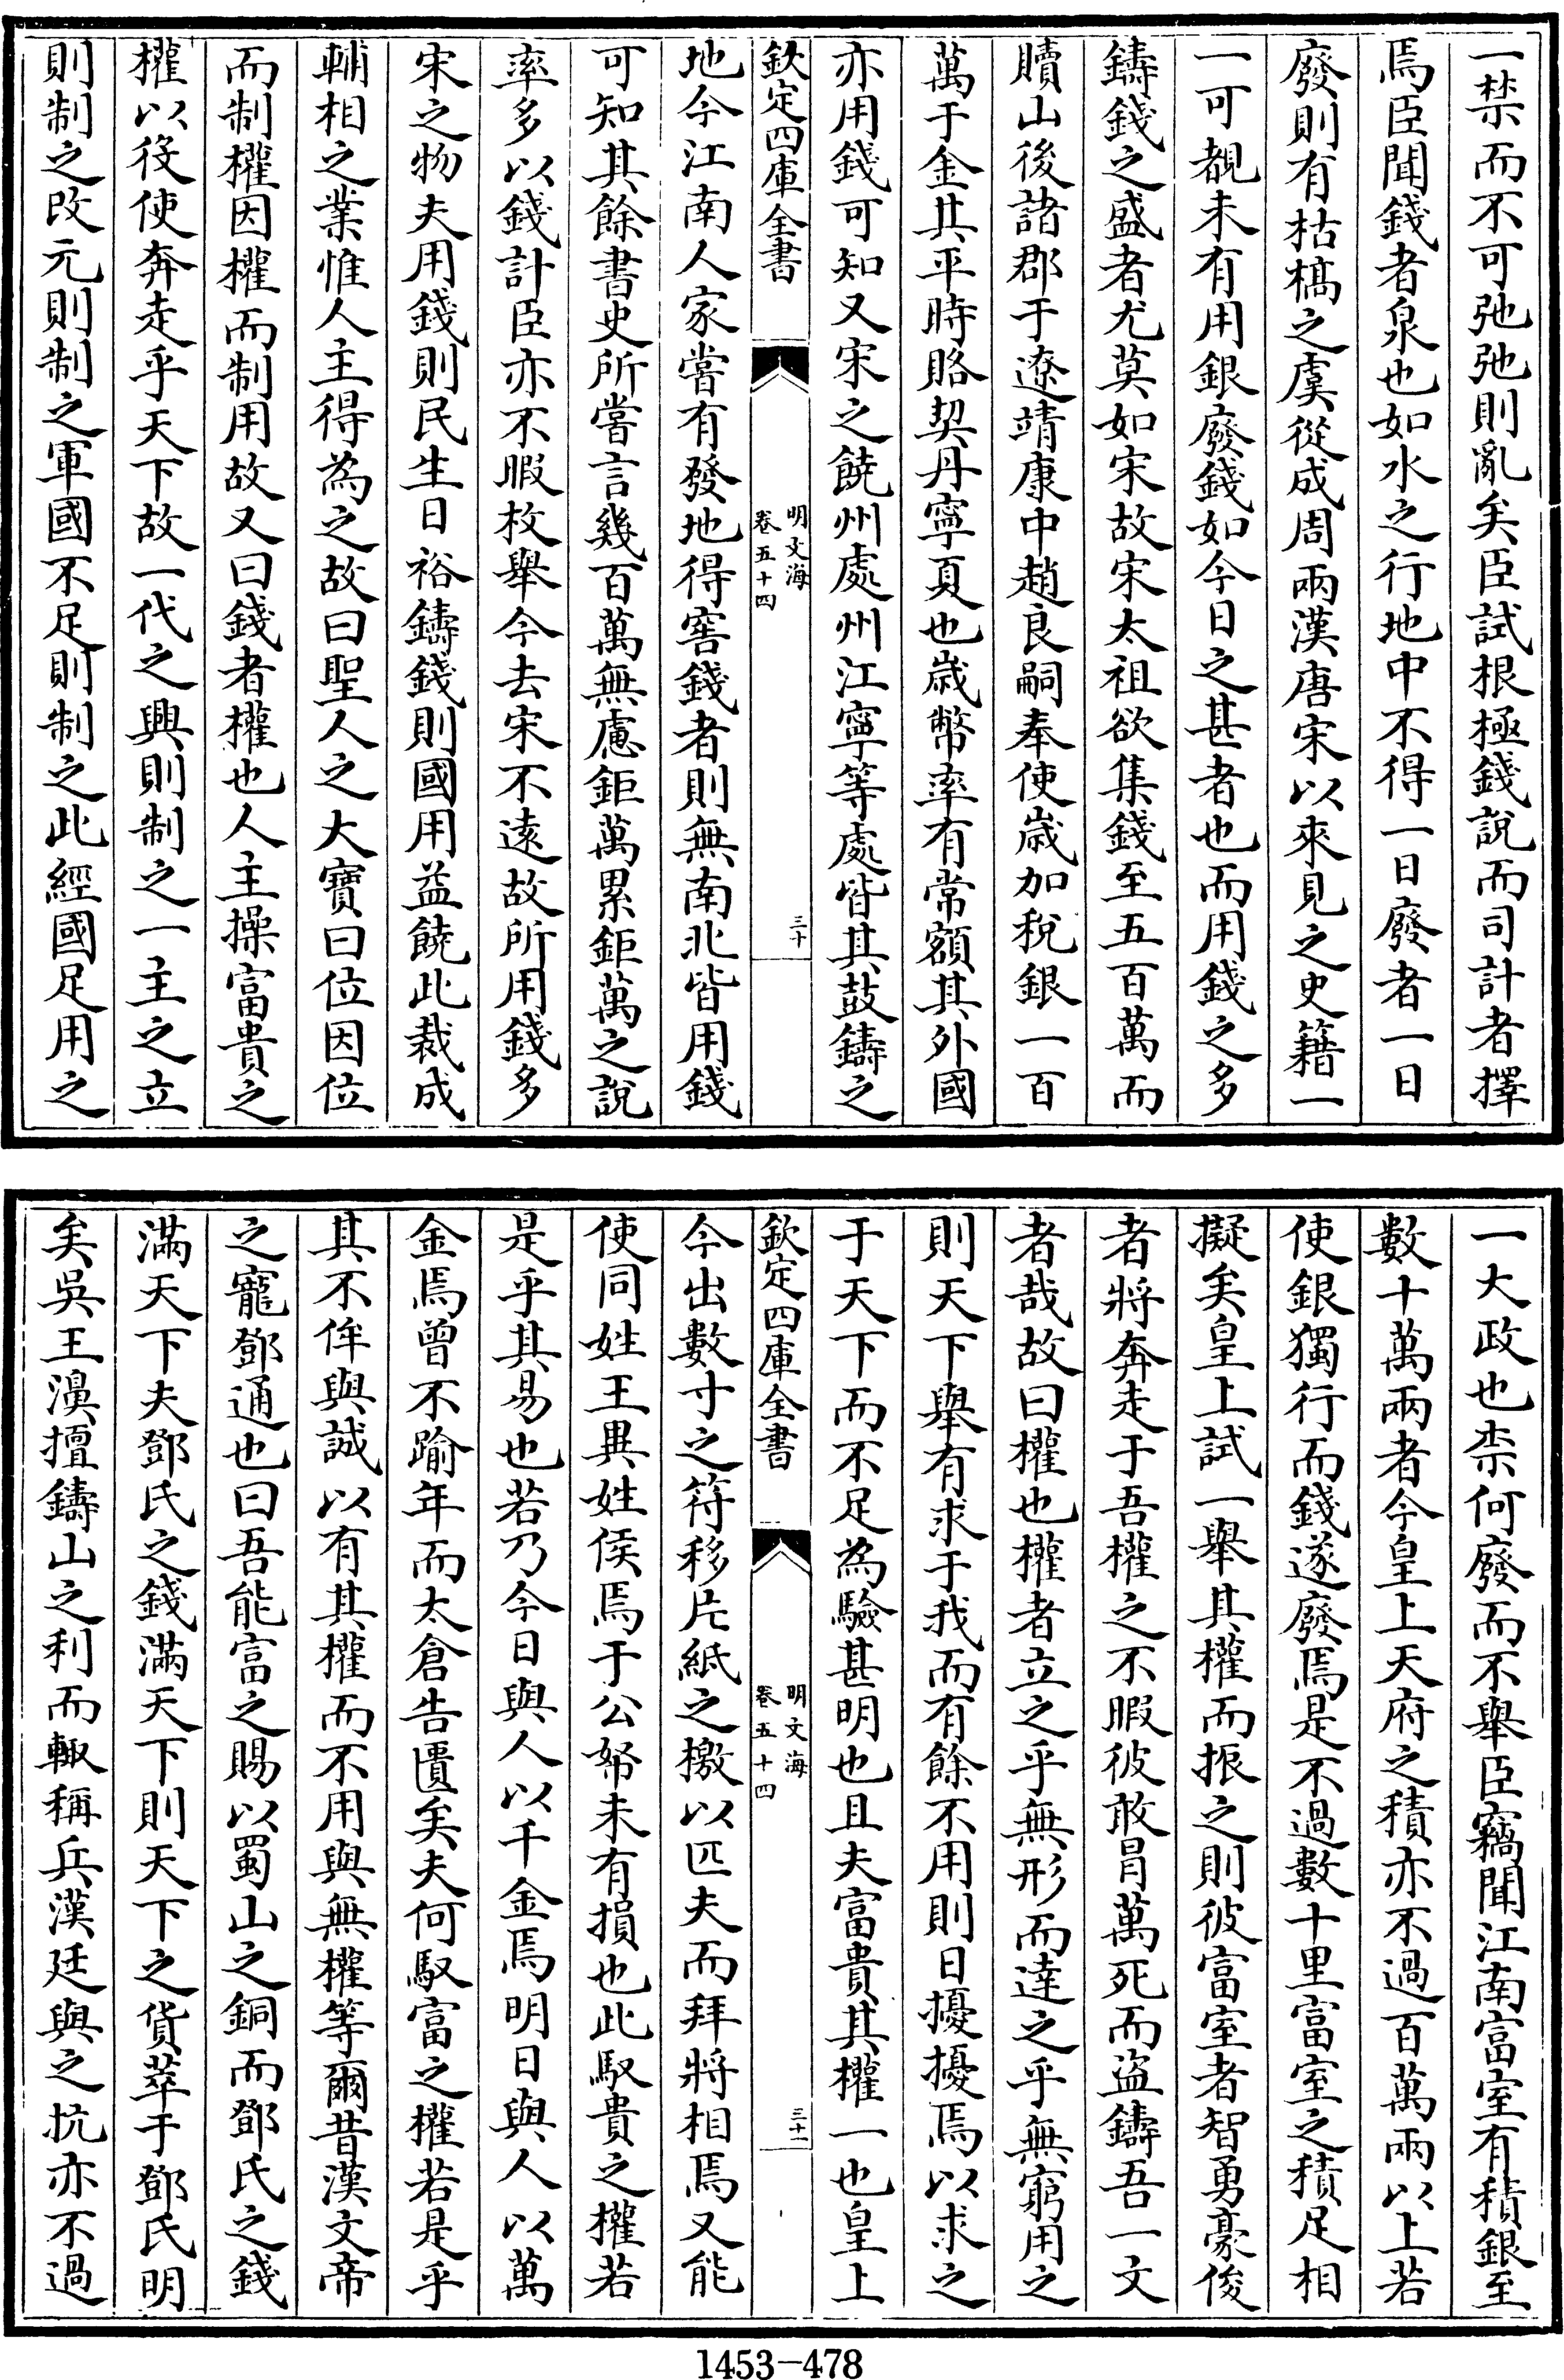 一禁而不可弛弛則亂矣臣試根極錢說而司計者擇
焉臣聞錢者泉也如水之行地中不得一日廢者一日
廢則有枯槁之虞從成周兩漢唐宋以來見之史籍一
一可覩未有用銀廢錢如今日之甚者也而用錢之多
鑄錢之盛者尤莫如宋故宋太祖欲集錢至五百萬而
贖山後諸郡于遼靖康中趙良嗣奉使歲加稅銀一百
萬于金其平時賂契丹寧夏也歲幣率有常額其外國
亦用錢可知又宋之饒州處州江寧等處皆其鼓鑄之
欽定四庫全書
明文海
卷五十四
三十
地今江南人家嘗有發地得窖錢者則無南北皆用錢
可知其餘書史所嘗言幾百萬無慮鉅萬累鉅萬之說
率多以錢計臣亦不暇枚舉今去宋不遠故所用錢多
宋之物夫用錢則民生日裕鑄錢則國用益饒此裁成
輔相之業惟人主得為之故曰聖人之大寶曰位因位
而制權因權而制用故又曰錢者權也人主操富貴之
權以役使奔走乎天下故一代之興則制之一主之立
則制之改元則制之軍國不足則制之此經國足用之
一大政也柰何廢而不舉臣竊聞江南富室有積銀至
數十萬兩者今皇上天府之積亦不過百萬兩以上若
使銀獨行而錢遂廢焉是不過數十里富室之積足相
擬矣皇上試一舉其權而振之則彼富室者智勇豪俊
者將奔走于吾權之不暇彼敢冒萬死而盜鑄吾一文
者哉故曰權也權者立之乎無形而達之乎無窮用之
則天下舉有求于我而有餘不用則日擾擾焉以求之
于天下而不足為驗甚明也且夫富貴其權一也皇上
欽定四庫全書
明文海
卷五十四
三十一
今出數寸之符移片紙之檄以匹夫而拜將相焉又能
使同姓王異姓侯焉于公帑未有損也此馭貴之權若
是乎其易也若乃今日與人以千金焉明日與人以萬
金焉曾不踰年而太倉告匱矣夫何馭富之權若是乎
其不侔與誠以有其權而不用與無權等爾昔漢文帝
之寵鄧通也曰吾能富之賜以蜀山之銅而鄧氏之錢
滿天下夫鄧氏之錢滿天下則天下之貨萃于鄧氏明
矣吳王濞擅鑄山之利而輙稱兵漢廷與之抗亦不過
1453-478